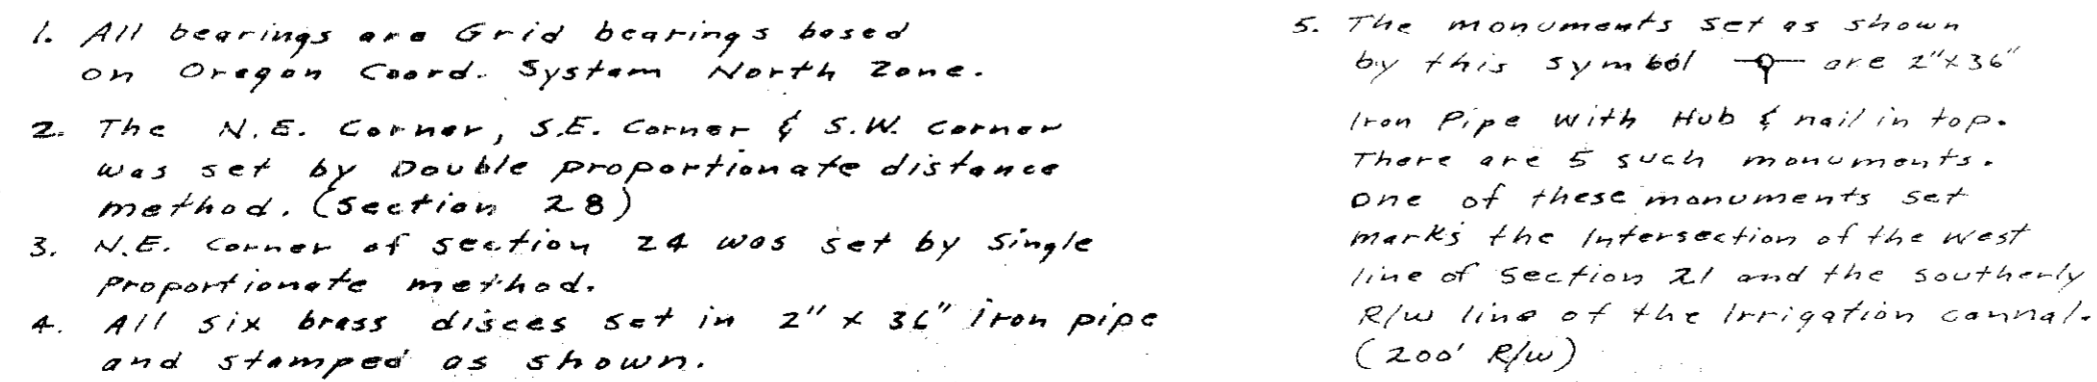 1. All bearings are Grid bearings based
on Oregon Coord. System North Zone.
2. The N.E. Corner, S.E. Corner & S.W. corner
was set by Double proportionate distance
method. (Section 28)
3. N.E. Corner of section 24 was set by Single
proportionate method.
4. All six brass disces set in 2" x 36" iron pipe
and stamped as shown.
5. The monuments set as shown
by this symbol are 2"x36"
Iron Pipe with Hub & nail in top.
There are 5 such monuments.
One of these monuments set
marks the Intersection of the west
line of Section 21 and the southerly
R/w line of the Irrigation cannal.
(200' R/w)